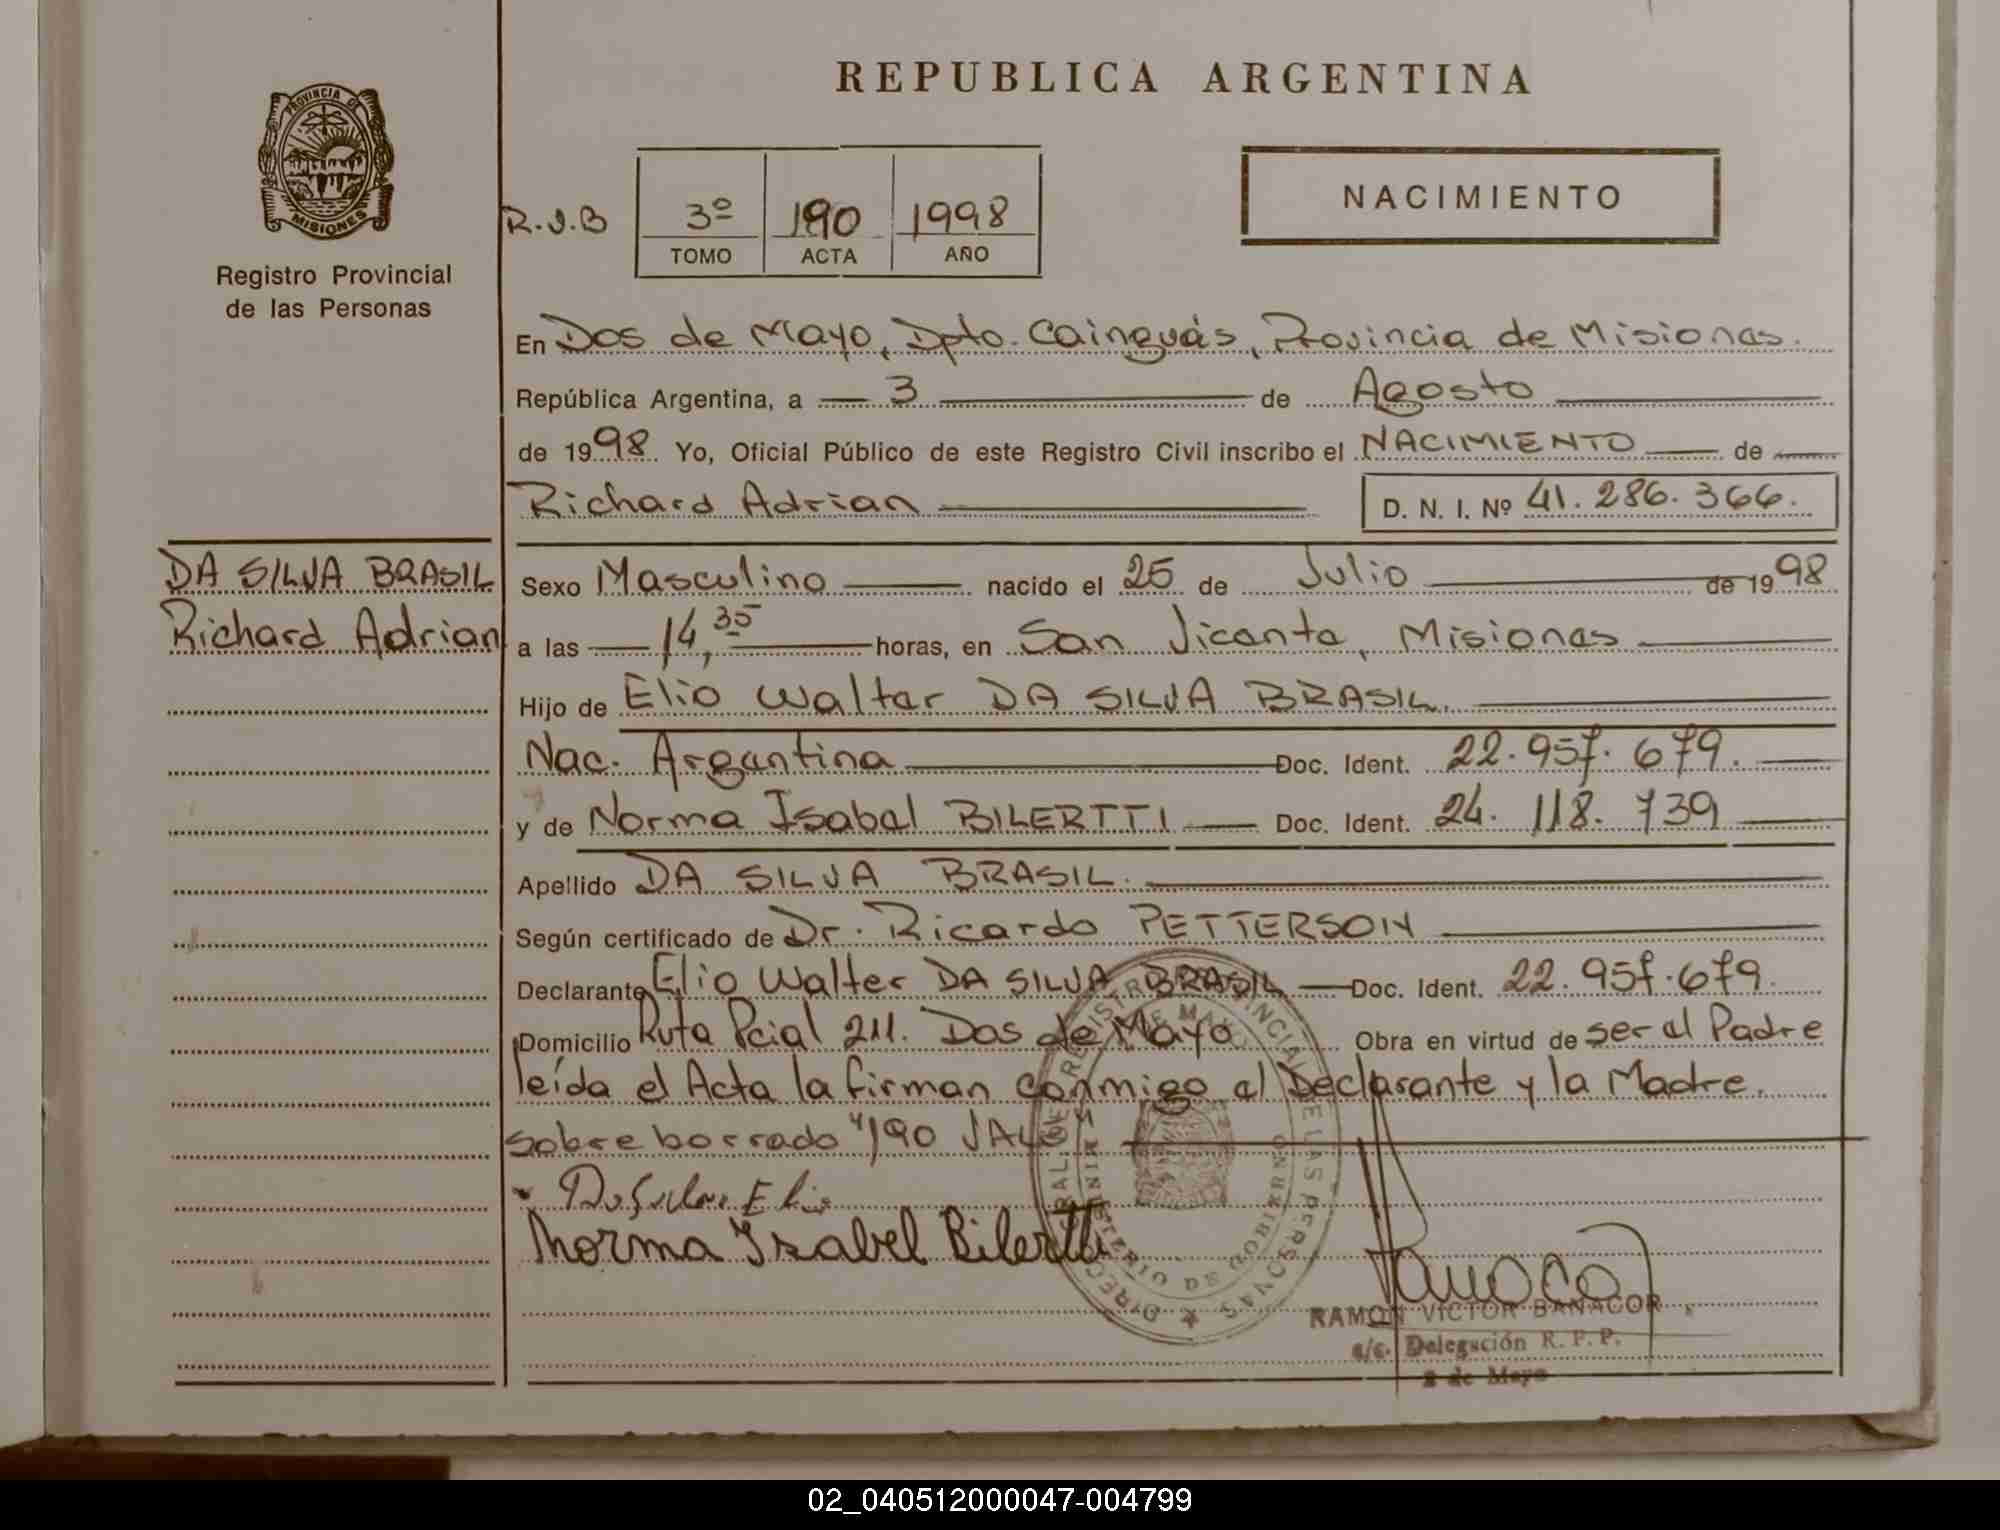 REPUBLICA ARGENTINA
PROVINCIA DE
MISIONES
Registro Provincial
de las Personas
NACIMIENTO
R.J.B 3º 190 1998
TOMO ACTA AÑO
En Dos de Mayo, Dpto. Cainguás, Provincia de Misiones.
República Argentina, a 3 de Agosto
de 1998 Yo, Oficial Público de este Registro Civil inscribo el NACIMIENTO de
Richard Adrian D. N. I. Nº 41.286.366.
DA SILVA BRASIL
Richard Adrian
Sexo Masculino nacido el 25 de Julio de 1998
a las 14,35 horas, en San Vicente, Misiones
Hijo de Elio Walter DA SILVA BRASIL.
Nac. Argentina Doc. Ident. 22.957.679.
y de Norma Isabel BILERTTI Doc. Ident. 24.118.739
Apellido DA SILVA BRASIL.
Según certificado de Dr. Ricardo PETTERSON
Declarante Elio Walter DA SILVA BRASIL Doc. Ident. 22.957.679.
Domicilio Ruta Pcial 211. Dos de Mayo Obra en virtud de ser el Padre
leída el Acta la firman conmigo el Declarante y la Madre.
sobre borrado "190 VALE
Da Silva Elio
Norma Isabel Bilertti
RAMON VICTOR BANACOR
a/c. Delegación R. P. P.
2 de Mayo
02_040512000047-004799